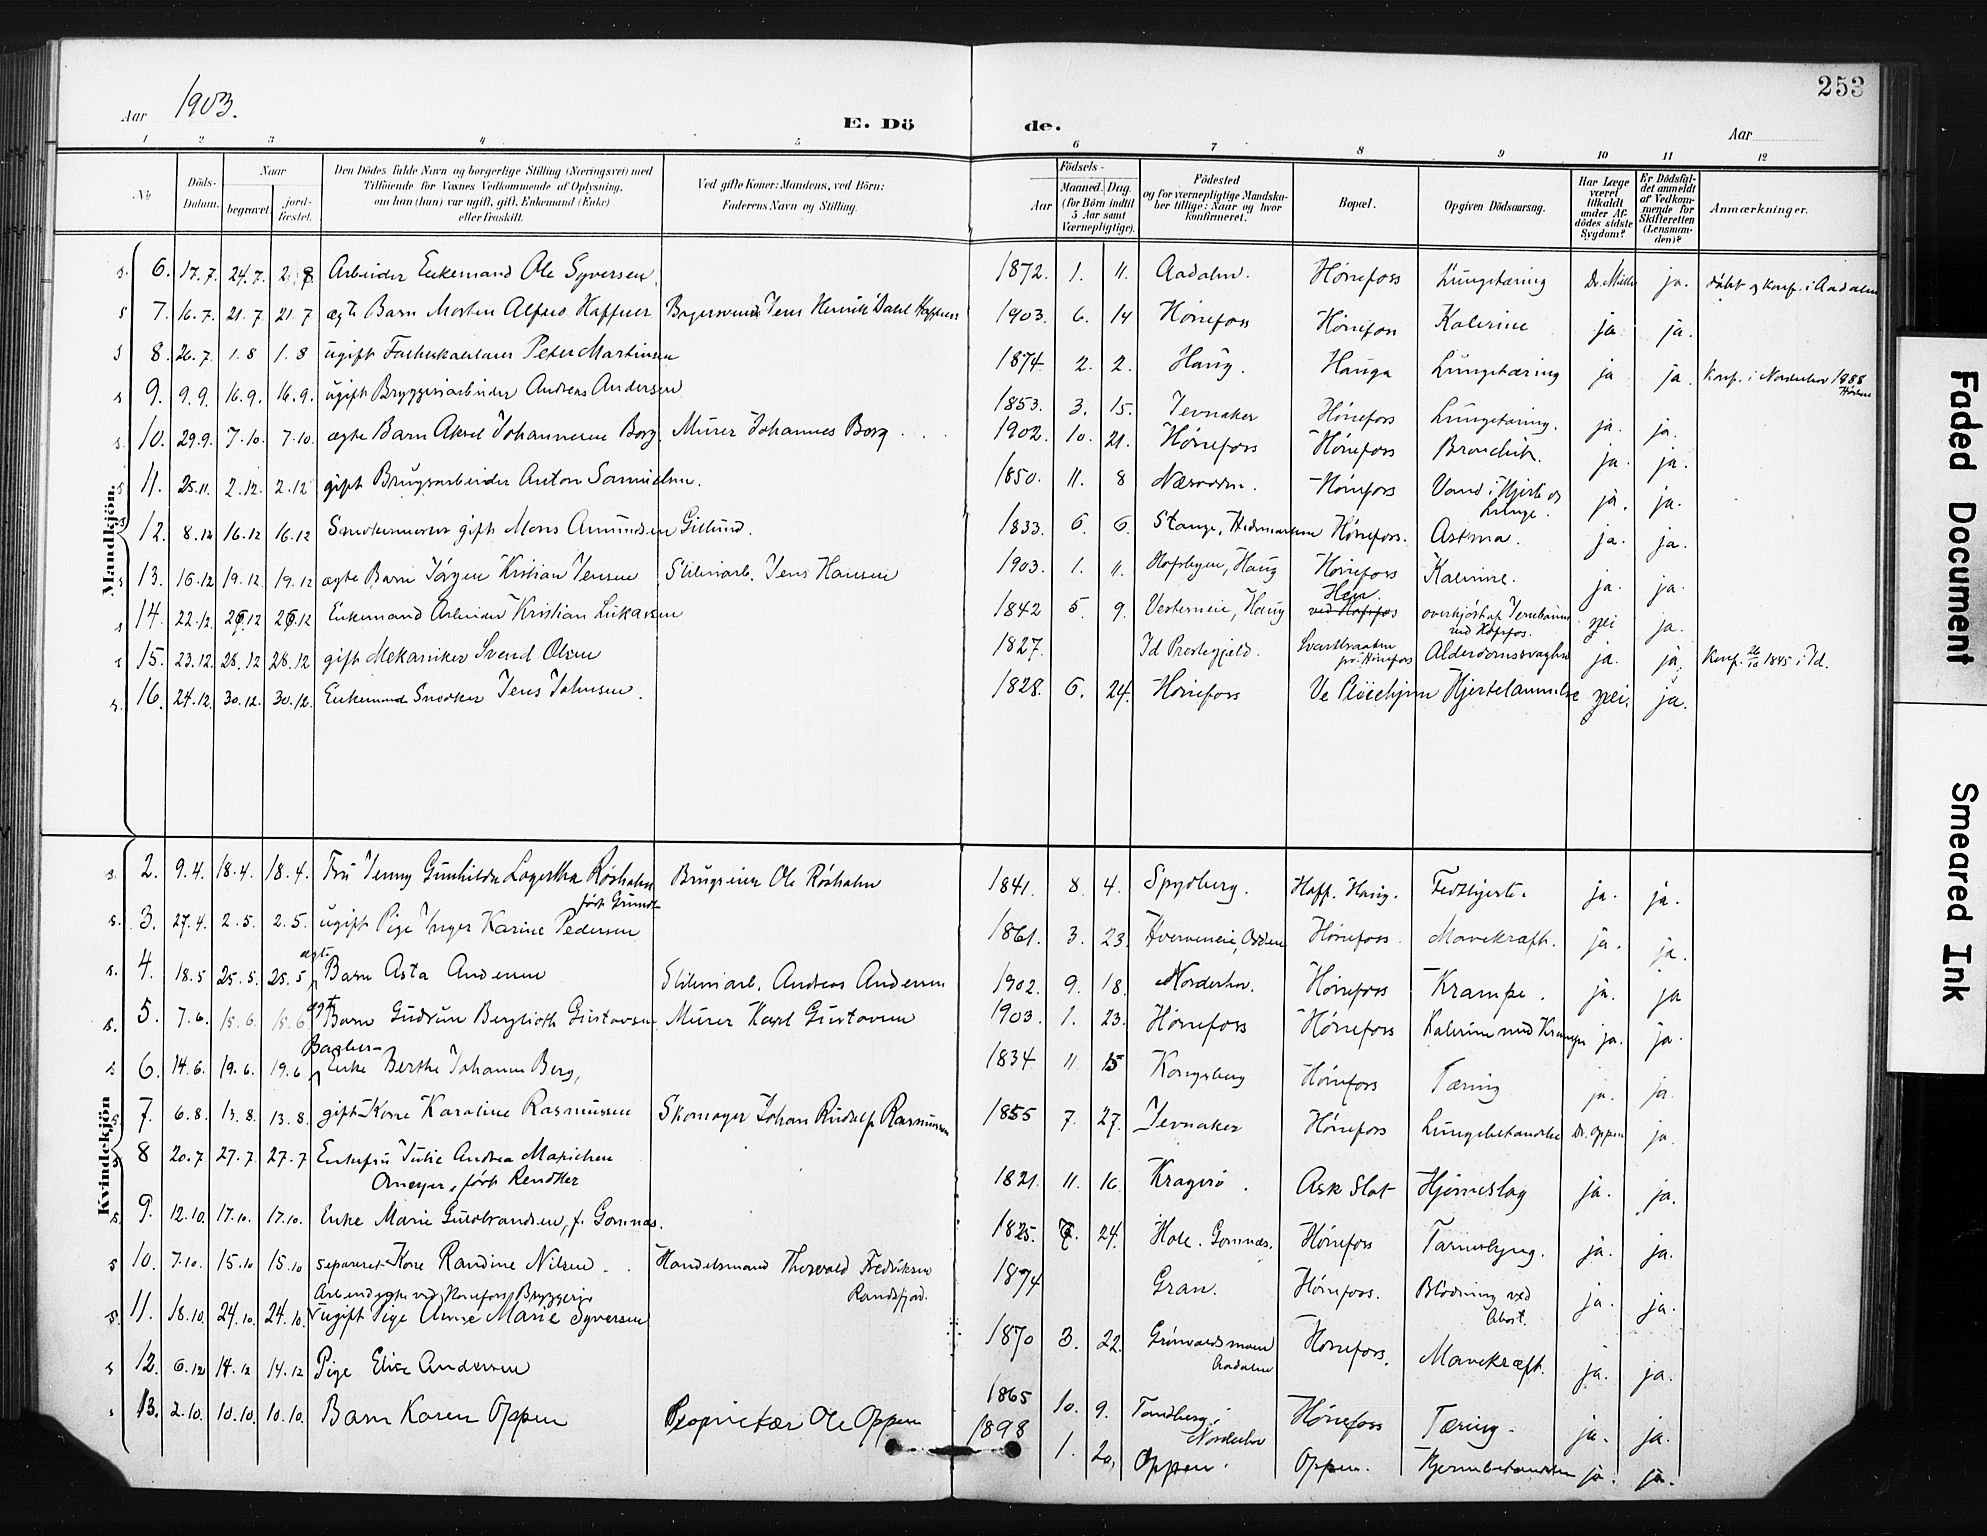 253
Aar 1903.
E. Dö
de.
Aar
1 2 3 4 5 6 7 8 9 10 11 12
No.
Döds-Datum.
Naar
begravet.
jord-fæstet.
Den Dödes fulde Navn og borgerlige Stilling (Næringsvei) med
Tilföiende for Voxnes Vedkommende af Oplysning,
om han (hun) var ugift, gift, Enkemand (Enke)
eller fraskilt.
Ved gifte Koner: Mandens, ved Börn:
Faderens Navn og Stilling.
Födsels-
Aar
Maaned.
Dag.
(for Börn indtil
5 Aar samt
Værnepligtige).
Födested
og for værnepligtige Mandsku-
ber tillige: Naar og hvor
konfirmeret.
Bopæl.
Opgiven Dödsaarsag.
Har Læge
været
tilkaldt
under Af-
dödes sidste
Sygdom?
Er Dödsfal-
det anmeldt
af Vedkom-
mende for
Skifteretten
(Lensman-
den)?
Anmærkninger.
Mandkjön.
s. 6. 17.7. 24.7. 2.8. Arbeider Enkemand Ole Syversen. 1872. 1. 11. Aadalen. Hönefoss Lungetæring Dr. Müller ja. döbt og konf. i Aadalen
s 7. 16.7. 21.7 21.7 ægte Barn Morten Alfred Haffner Bagersvend Jens Henrik Dahl Haffner 1903. 6. 14 Hönefoss Hönefoss Kolerine ja ja.
s 8. 26.7. 1.8 1.8 ugift Peter Martinsen 1874 2. 2. Haug. Hauga Lungetæring ja ja. Konf. i Norderhov 1888
s 9. 9.9. 16.9. 16.9. ugift Bryggeriarbeider Andreas Andersen 1853. 3. 15. Jevnaker Hönefoss Lungetæring. ja. ja.
s. 10. 29.9. 7.10. 7.10. ægte Barn Aksel Johannesen Borg Murer Johannes Borg 1902. 10. 21. Hönefoss Hönefoss Bronchit. ja. ja.
s 11. 25.11. 2.12. 2.12 gift Brugsarbeider Anton Samuelsen. 1850. 11. 8 Næsodden. Hönefoss Vand i Hjerte og
Lunge. ja. ja.
s 12. 8.12 16.12 16.12 Snedkermester gift Mons Amundsen Gislund. 1833 6. 6. Stange, Hedemarken Hönefoss. Astma. ja. ja.
s 13. 16.12 19.12. 19.12 ægte Barn Jörgen Kristian Jensen Sliberiarb. Jens Hansen 1903. 1. 11. Hofsbyen, Haug Hönefoss Kolerine. ja. ja.
s 14. 22.12. 26.12 26.12 Enkemand Arbeider Kristian Lukassen 1842 5. 9. Vesterneie, Haug ved Hofsfos Hen. overkjört af Jernbanen
ved Hofsfos. nei ja.
s 15. 23.12. 28.12 28.12 gift Mekaniker Svend Olsen 1827. Id Prestegjæld. Svartbraaten
pr. Hönefoss Alderdomssvaghed ja. ja. Konf. 26/10 1845 i Id.
s. 16. 24.12. 30.12. 30.12. Enkemand Snedker Jens Johnsen. 1828. 6. 24. Hönefoss Ve Pleiehjem Hjertelammelse nei. ja.
Kvindekjön
s. 2. 9.4. 18.4. 18.4. Fru Jenny Gunhilde Lagertha Rösholm
född Grundt Brugseier Ole Rösholm 1841. 8. 4. Spydberg. Hoff. Haug. Fedthjerte. ja. ja.
s. 3. 27.4. 2.5. 2.5. ugift Pige Inger Karine Pedersen 1861. 3. 23. Hönefoss. Mavekræft. ja. ja.
s. 4. 18.5 25.5. 25.5 ægte Barn Asta Andersen Sliberiarb. Andreas Andersen 1902. 9. 18. Norderhov. Hönefoss Krampe. ja. ja
s. 5. 7.6. 15.6. 15.6 ægte Barn Gudrun Berglioth Gustavsen Murer Karl Gustavsen 1903. 1. 23. Hönefoss Hönefoss Kolerine med Krampe ja. ja.
s 6. 14.6. 19.6. 19.6 Enke Berthe Johanne Berg, 1834 11 15 Kongsberg Hönefoss Tæring ja. ja.
s 7. 6.8. 13.8. 13.8. gift Kone Karoline Rasmussen Skomager Johan Rudolf Rasmussen 1855 7. 27. Jevnaker Hönefoss Lungebetændelse Dr. Oppen ja.
s 8 20.7 27.7. 27.7 Enkefru Julie Andrea
Omeyer, född 1821. 11. 16 Kragerö. Ask Slot Hjerneslag ja. ja.
s. 9. 12.10. 17.10. 17.10. Enke Marie Gulbrandsen, f. Gomnæs. 1825. 7. 24. Hole. Gomnæs. Hönefoss Tarmslyng. ja. ja.
s 10. 7.10. 15.10 15.10 separeret Kone Randine Nilsen. Handelsmand Thorvald Fredriksen
Randsfjord. 1874 Gran. Hönefoss. Blödning ved
Abort. ja. ja.
s. 11. 18.10. 24.10. 24.10. Arbeiderske ved Hönefoss Bryggeri
ugift Pige Anne Marie Syversen 1870 3. 22.
Aadalen Hönefoss. Mavekræft. ja. ja.
s 12. 6.12 14.12 14.12 Pige Elise Andersen 1865 10. 9. Tandberg i
Norderhov Hönefoss Tæring. ja. ja.
s 13. 2.10. 10.10. 10.10. Barn Karen Oppen Proprietær Ole Oppen 1898 1. 20. Oppen. Oppen. Hjernebetændelse ja. ja.
Faded Document
Smeared Ink